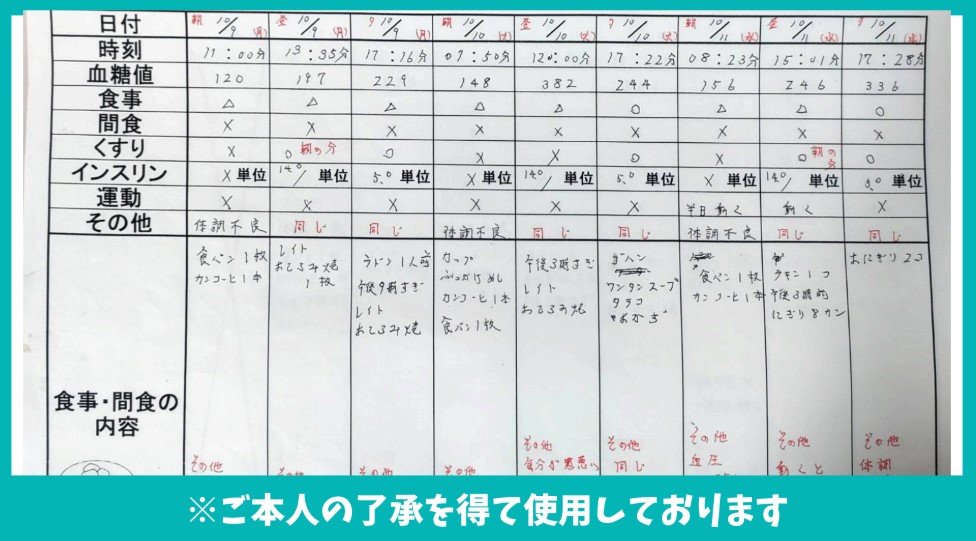 日付 朝 10/9 (月) 昼 10/9 (月) 夕 10/9 (月) 朝 10/10 (火) 昼 10/10 (火) 夕 10/10 (火) 朝 10/11 (水) 昼 10/11 (水) 夕 10/11 (水)
時刻 11:00分 13:35分 17:16分 07:50分 12:00分 17:22分 08:23分 15:01分 17:28分
血糖値 120 197 229 148 382 244 156 246 336
食事 △ △ △ △ △ ○ △ △ ○
間食 × × × × × × × × ×
くすり × ○ 朝の分 ○ × × ○ × ○ 朝の分 ○
インスリン × 単位 14.0/ 単位 5.0 単位 × 単位 14.0/ 単位 5.0 単位 × 単位 14.0/ 単位 5.0 単位
運動 × × × × × × 半日動く 動く ×
その他 体調不良 同じ 同じ 体調不良 同じ 同じ 体調不良 同じ 同じ
食事・間食の
内容
食パン1枚
カンコーヒ1本
レイト
おこのみ焼
1枚
ウドン1人前
午後9時すぎ
レイト
おこのみ焼
カップ
ぶっかけめし
カンコーヒ1本
食パン1枚
午後3時すぎ
レイト
おこのみ焼
その他
ワンタンスープ
タラコ
その他
同じ
食パン1枚
カンコーヒ1本
その他
血圧
チキン1コ
午後3時前
にぎり8カン
その他
動くと
おにぎり2コ
その他
体調
その他
その他
その他
その他
※ご本人の了承を得て使用しております